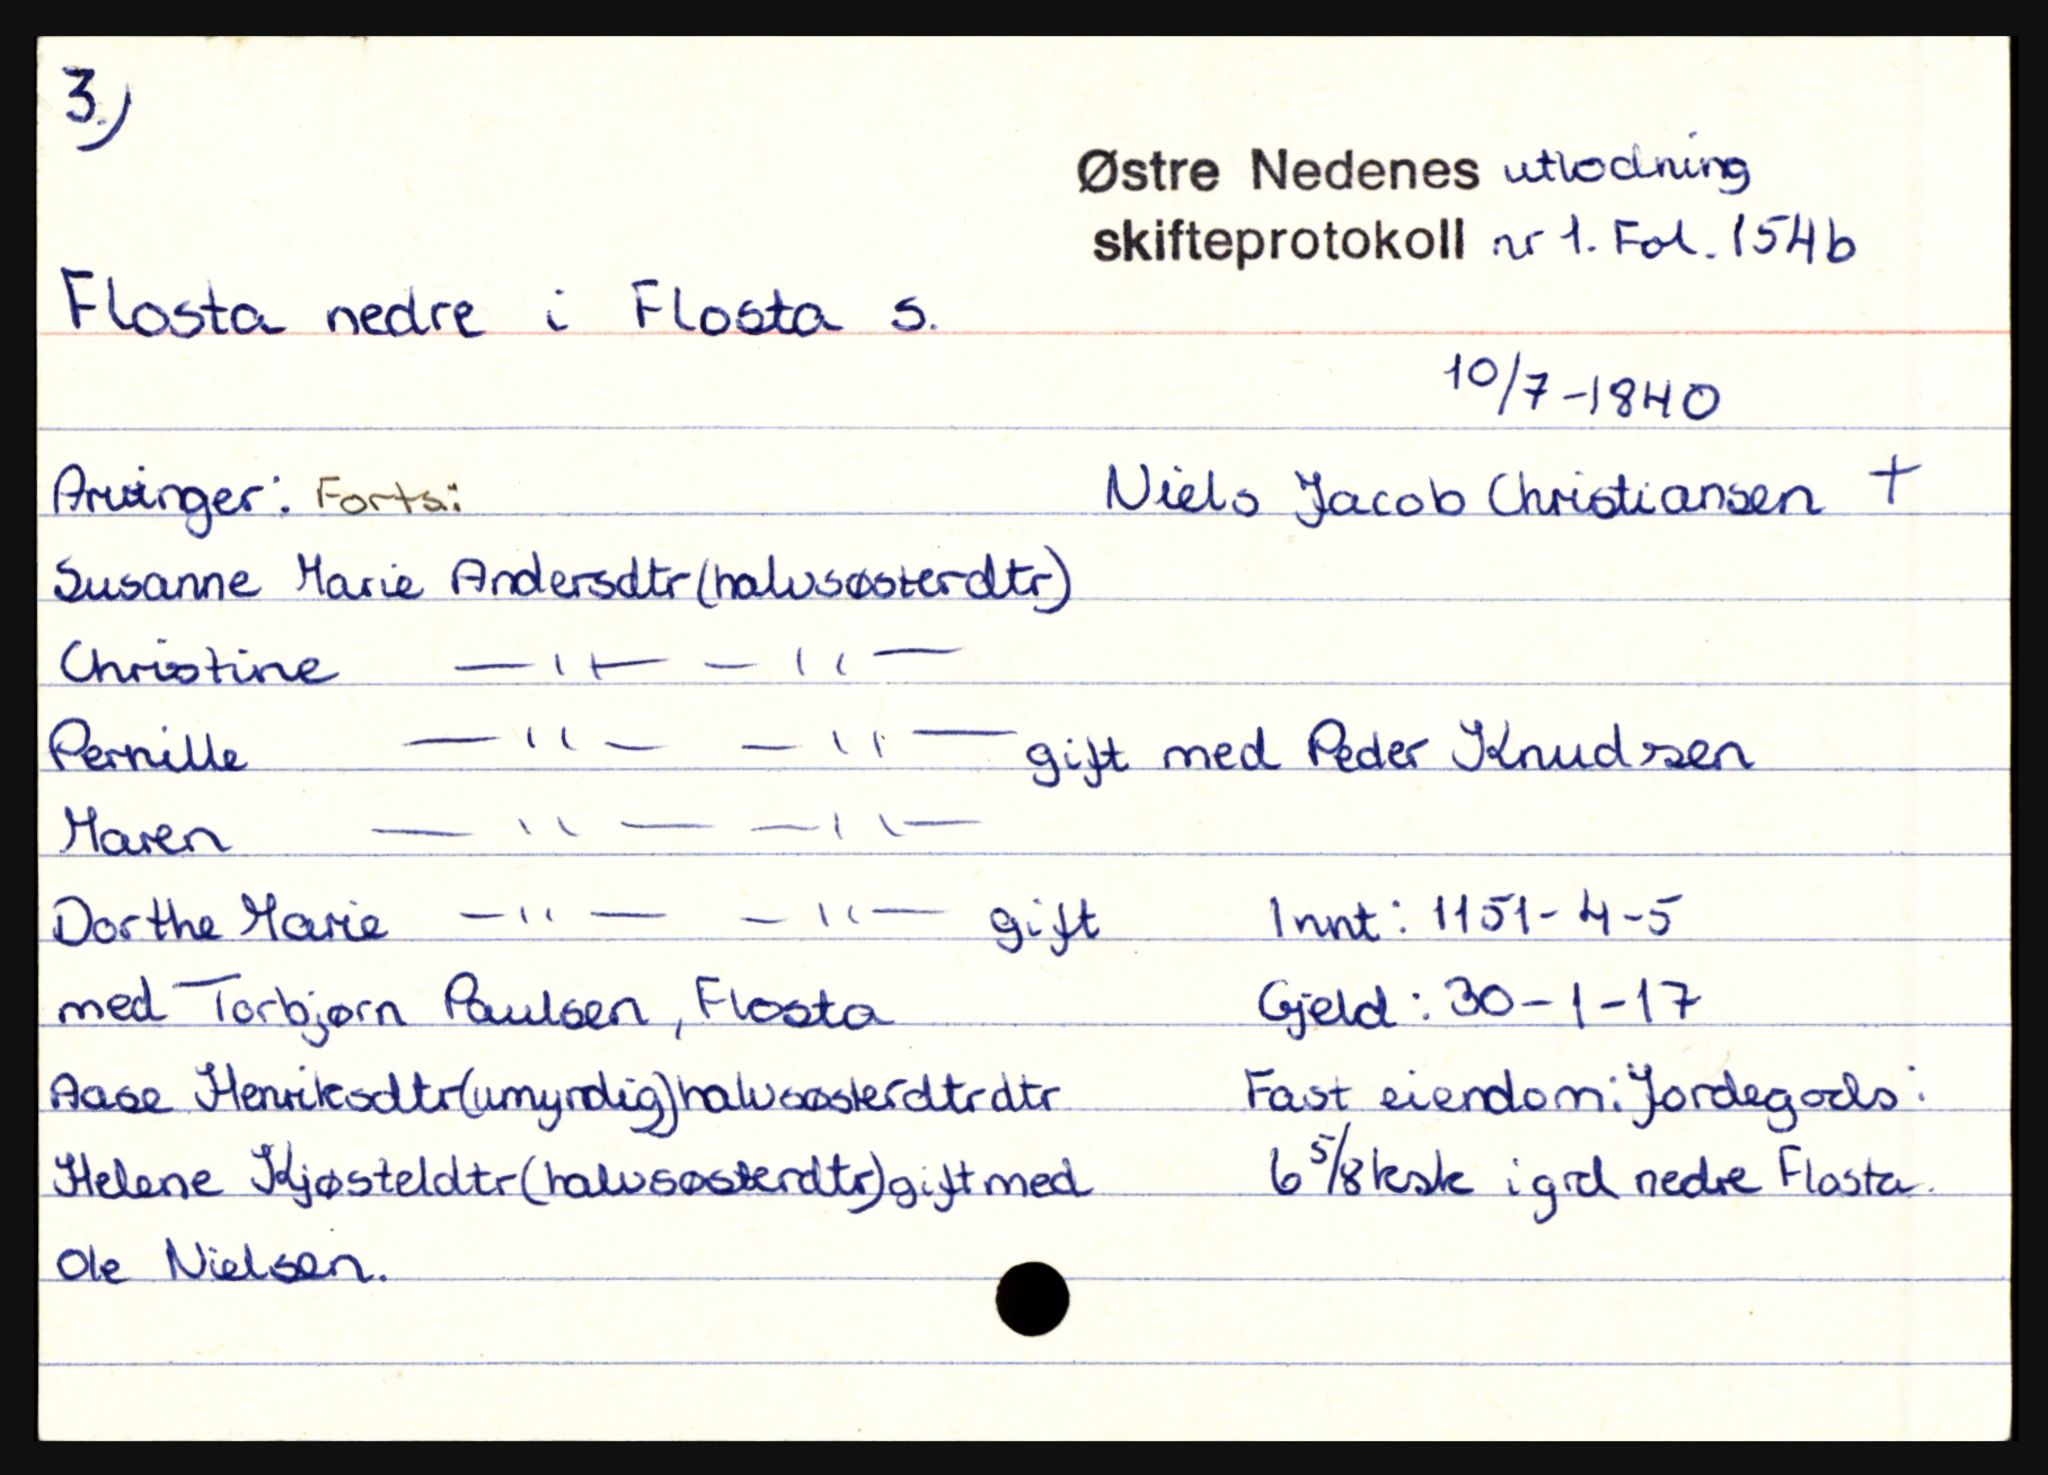 3.)
Østre Nedenes utlodning
skifteprotokoll nr 1. Fol. 154b
Flosta nedre i Flosta s.
10/7-1840
Arvinger: Forts:
Niels Jacob Christiansen +
Susanne Marie Andersdtr (halvsøsterdtr)
Christine —"— —"—
Pernille —"— —"— gift med Peder Knudsen
Maren —"— —"—
Dorthe Marie —"— —"— gift
Innt: 1151-4-5
med Torbjørn Paulsen, Flosta
Gjeld: 30-1-17
Aase Henriksdtr (umyndig) halvsøsterdtrdtr
Fast eiendom: Jordegods:
Helene Kjøsteldtr (halvsøsterdtr) gift med
6 5/8 ksk i grd nedre Flosta.
Ole Nielsen.